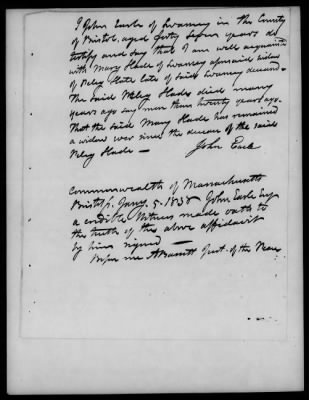 I John Earle of Swansey in the County
of Bristol, aged forty seven years do
testify and say that I am well acquainted
with Mary Slade of Swansey aforesaid widow
of Peleg Slade late of said Swansey deceased.
The said Peleg Slade died many
years ago say more than twenty years ago.
That the said Mary Slade has remained
a widow ever since the decease of the said
Peleg Slade —
John Earle
Commonwealth of Massachusetts
Bristol ss. Jany. 5. 1838 John Earle Esq
a credible Witness made oath to
the truth of the above affidavit
by him signed —
Before me Just. of the Peace